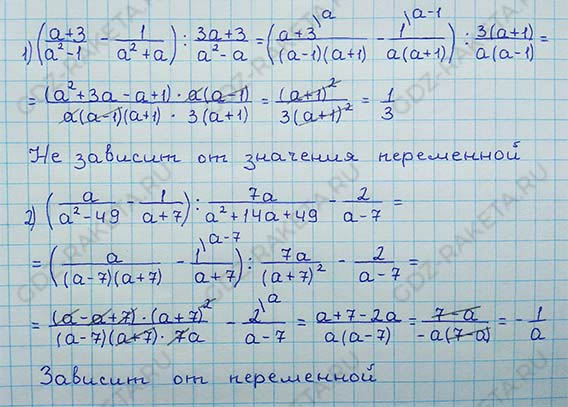 1) ((a+3)/(a²-1) - 1/(a²+a)) : (3a+3)/(a²-a) = ((a+3^{\a})/((a-1)(a+1)) - 1^{\a-1}/(a(a+1))) : (3(a+1))/(a(a-1)) =
= ((a²+3a-a+1)·a(a-1))/(a(a-1)(a+1)·3(a+1)) = (a+1)²/(3(a+1)²) = 1/3
Не зависит от значения переменной
2) (a/(a²-49) - 1/(a+7)) : 7a/(a²+14a+49) - 2/(a-7) =
= (a/((a-7)(a+7)) - 1^{\a-7}/(a+7)) : 7a/(a+7)² - 2/(a-7) =
= ((a-a+7)·(a+7)²)/((a-7)(a+7)·7a) - 2^{\a}/(a-7) = (a+7-2a)/(a(a-7)) = (7-a)/(-a(7-a)) = -1/a
Зависит от переменной
GDZ-RAKETA.RU